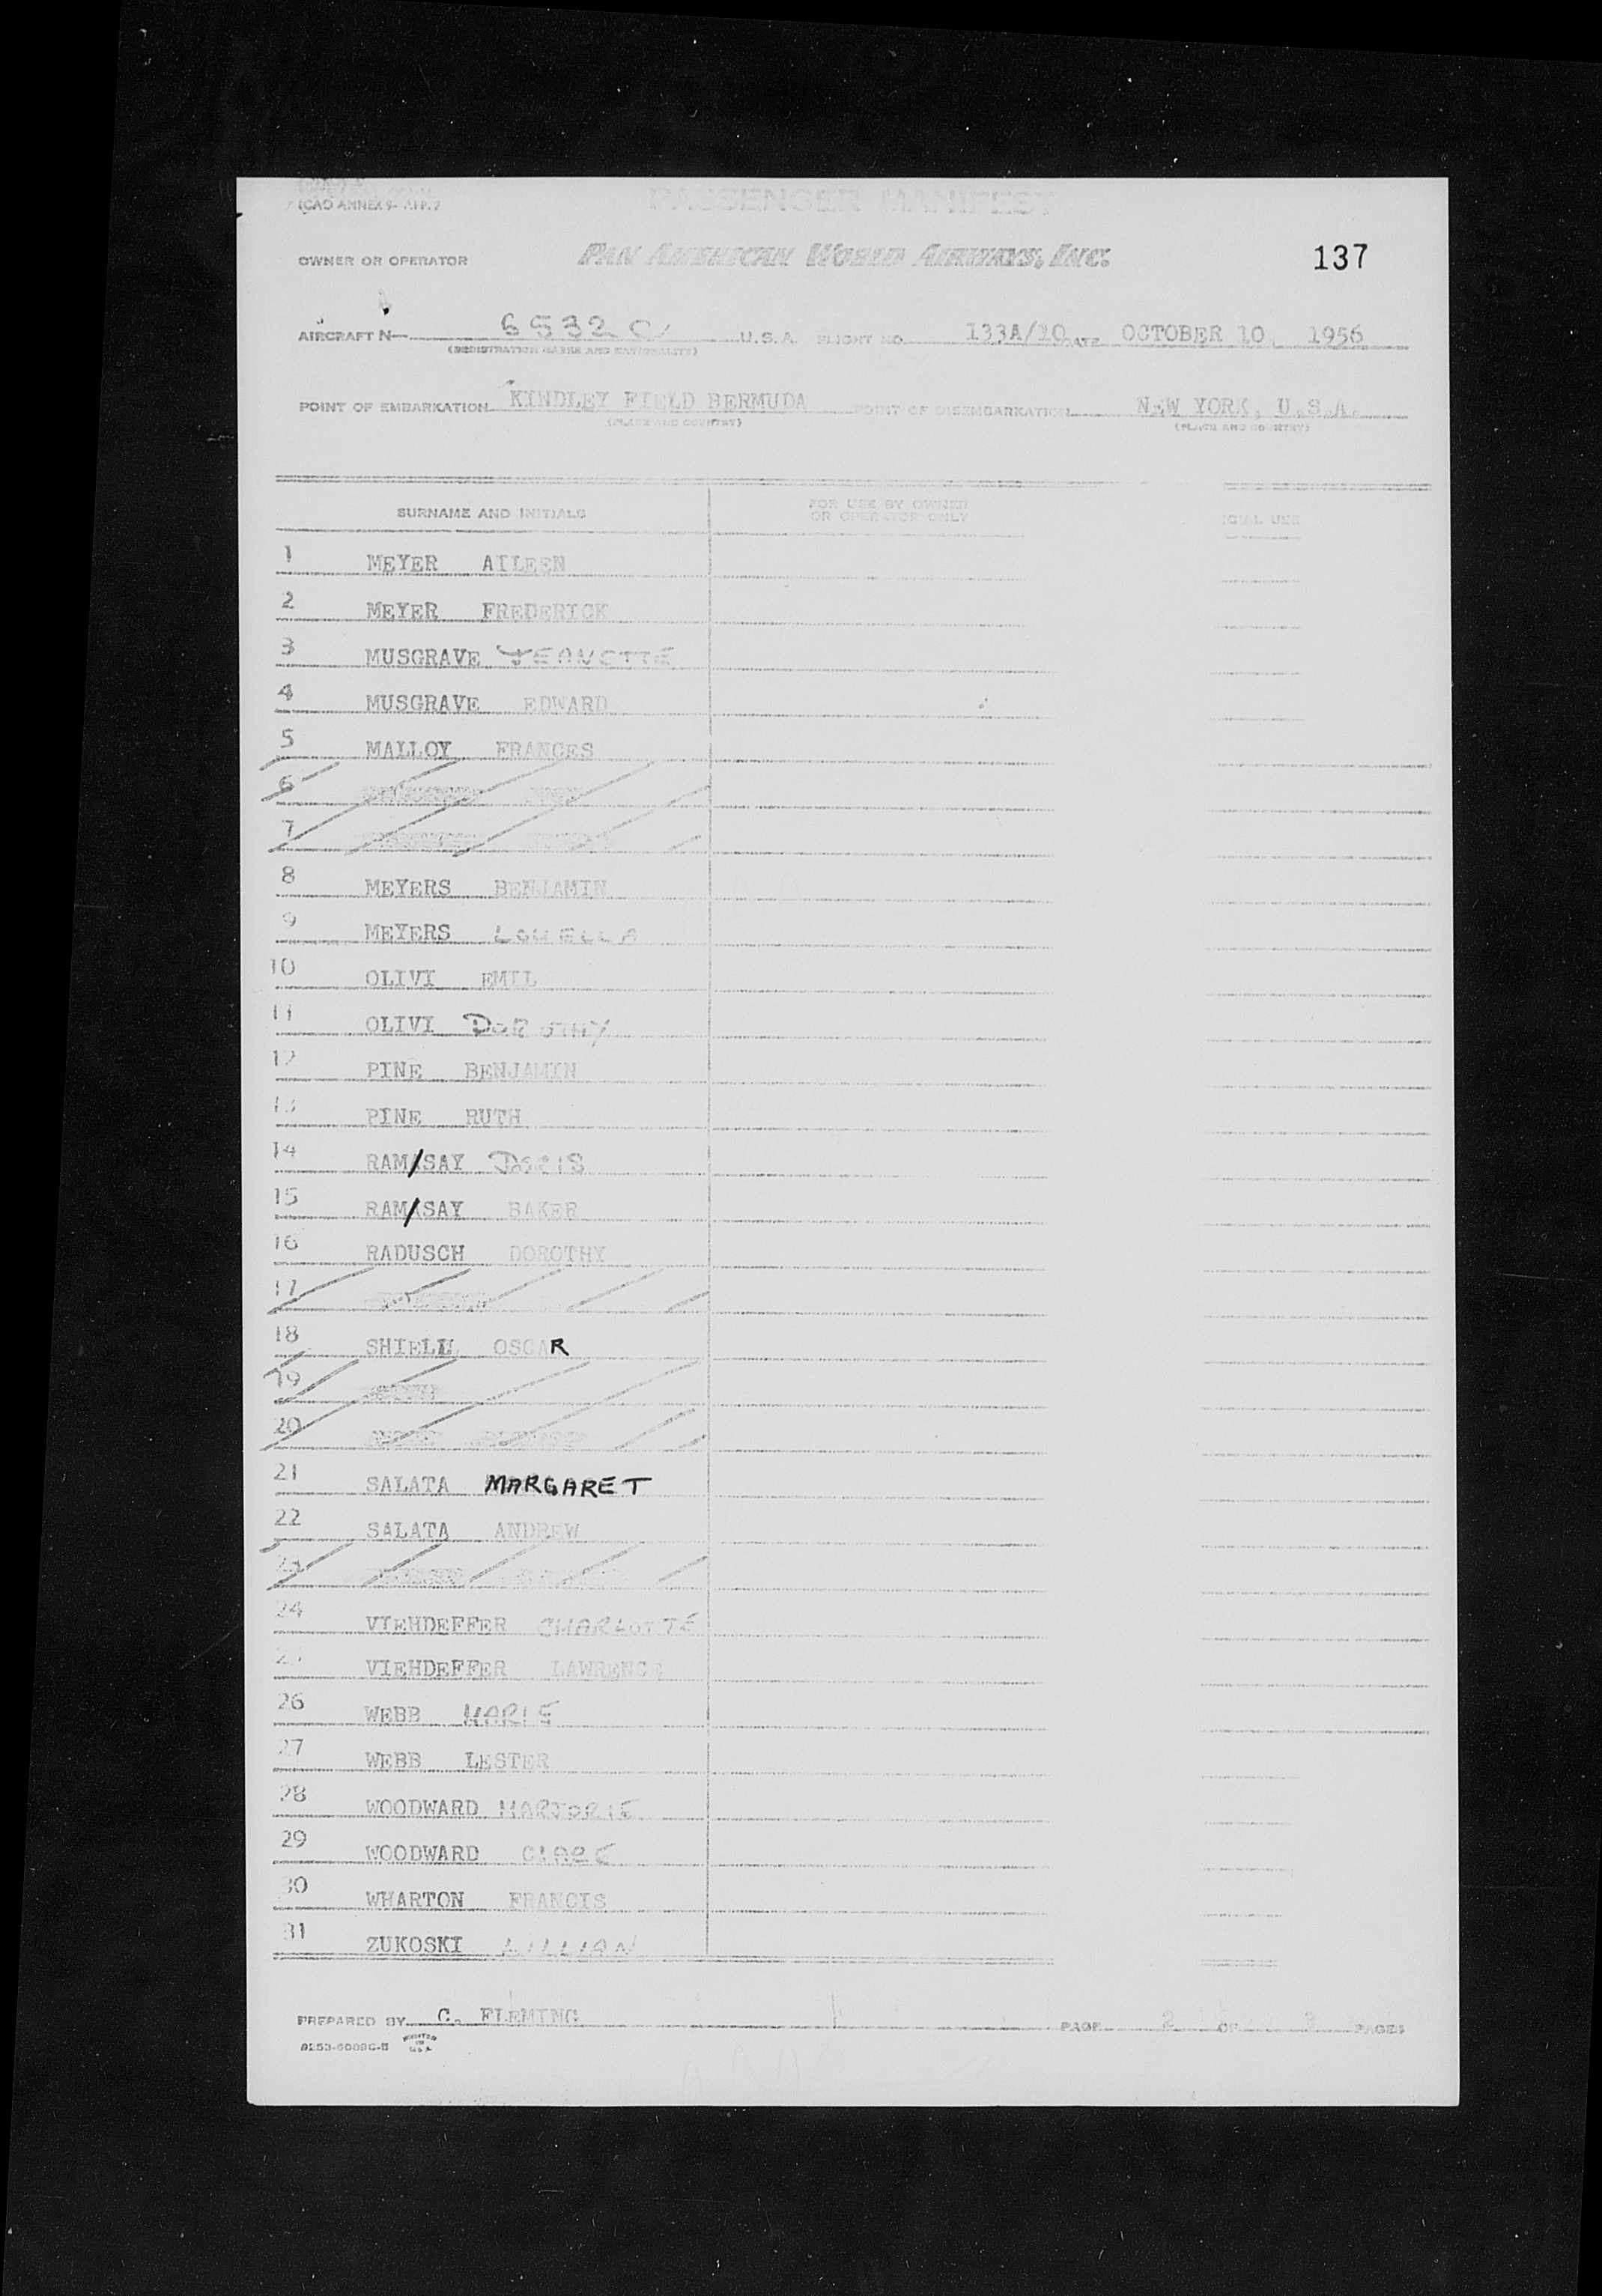 ICAO ANNEX 9- APP. 2
PASSENGER MANIFEST
OWNER OR OPERATOR PAN AMERICAN WORLD AIRWAYS, INC. 137
AIRCRAFT N— 6532C U.S.A. FLIGHT NO. 133A/10 DATE OCTOBER 10, 1956
(REGISTRATION MARKS AND NATIONALITY)
POINT OF EMBARKATION KINDLEY FIELD BERMUDA POINT OF DISEMBARKATION NEW YORK, U.S.A.
(PLACE AND COUNTRY) (PLACE AND COUNTRY)
SURNAME AND INITIALS FOR USE BY OWNER OR OPERATOR ONLY ICIAL USE
1 MEYER AILEEN
2 MEYER FREDERICK
3 MUSGRAVE JEANETTE
4 MUSGRAVE EDWARD
5 MALLOY FRANCES
6
7
8 MEYERS BENJAMIN
9 MEYERS LOUELLA
10 OLIVI EMIL
11 OLIVI DOROTHY
12 PINE BENJAMIN
13 PINE RUTH
14 RAM/SAY DORIS
15 RAM/SAY BAKER
16 RADUSCH DOROTHY
17
18 SHIELL OSCAR
19
20
21 SALATA MARGARET
22 SALATA ANDREW
23
24 VIEHDEFFER CHARLOTTE
25 VIEHDEFFER LAWRENCE
26 WEBB MARIE
27 WEBB LESTER
28 WOODWARD MARJORIE
29 WOODWARD CLARE
30 WHARTON FRANCIS
31 ZUKOSKI LILLIAN
PREPARED BY C. FLEMING PAGE 2 OF PAGES
PRINTED IN U.S.A.